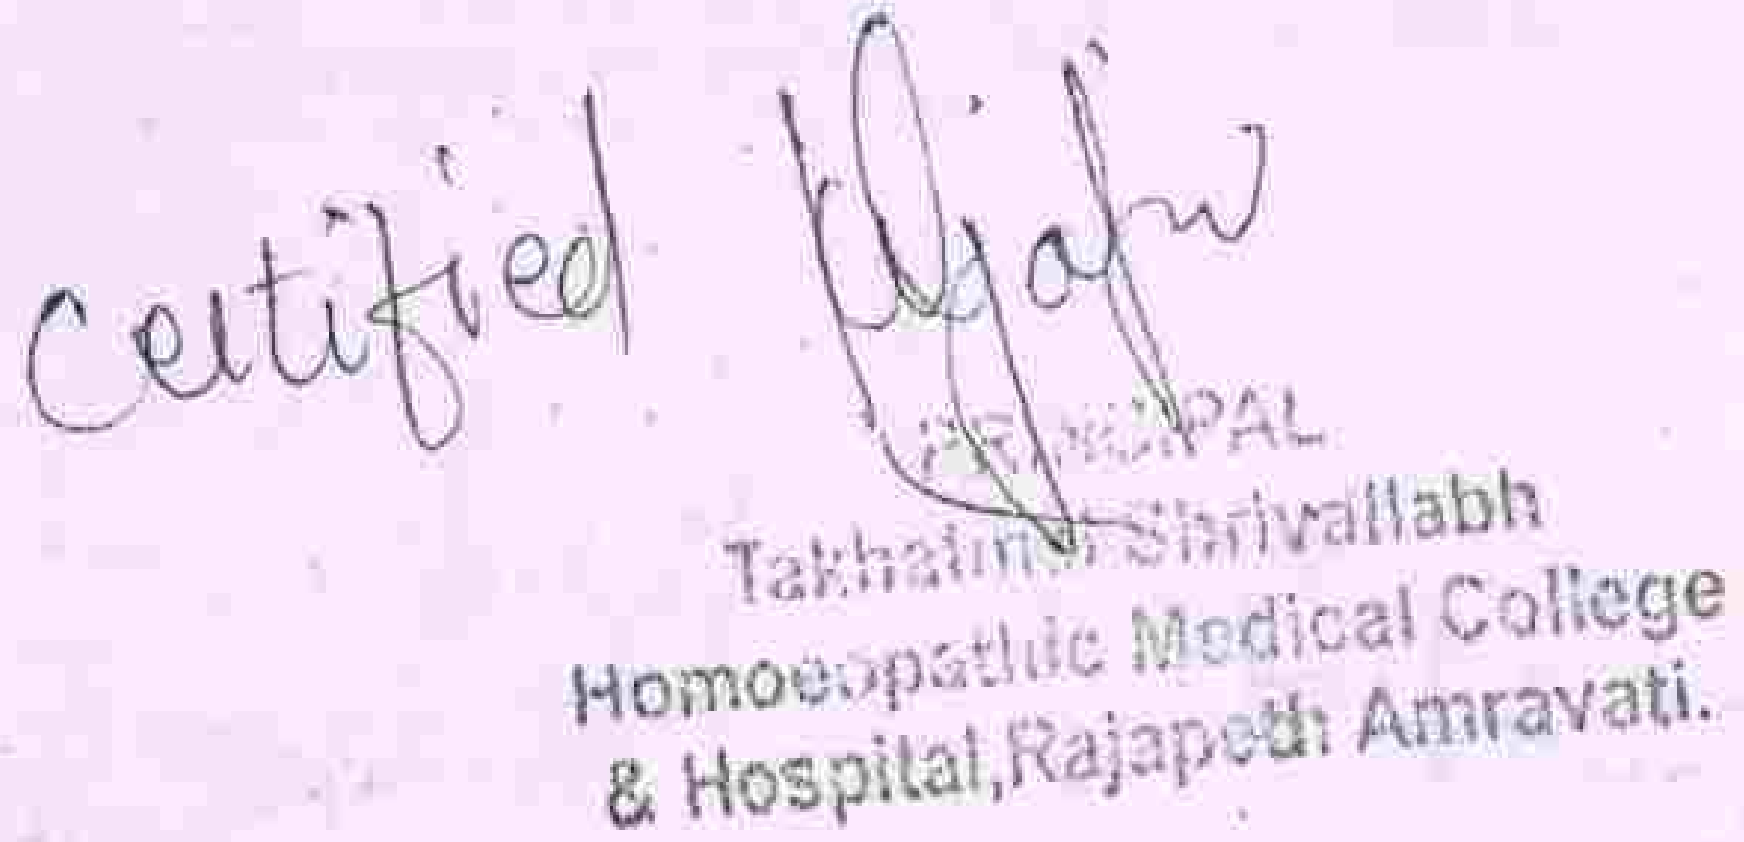 Certified
PRINCIPAL
Takhatmal Shrivallabh
Homoeopathic Medical College
& Hospital, Rajapeth Amravati.